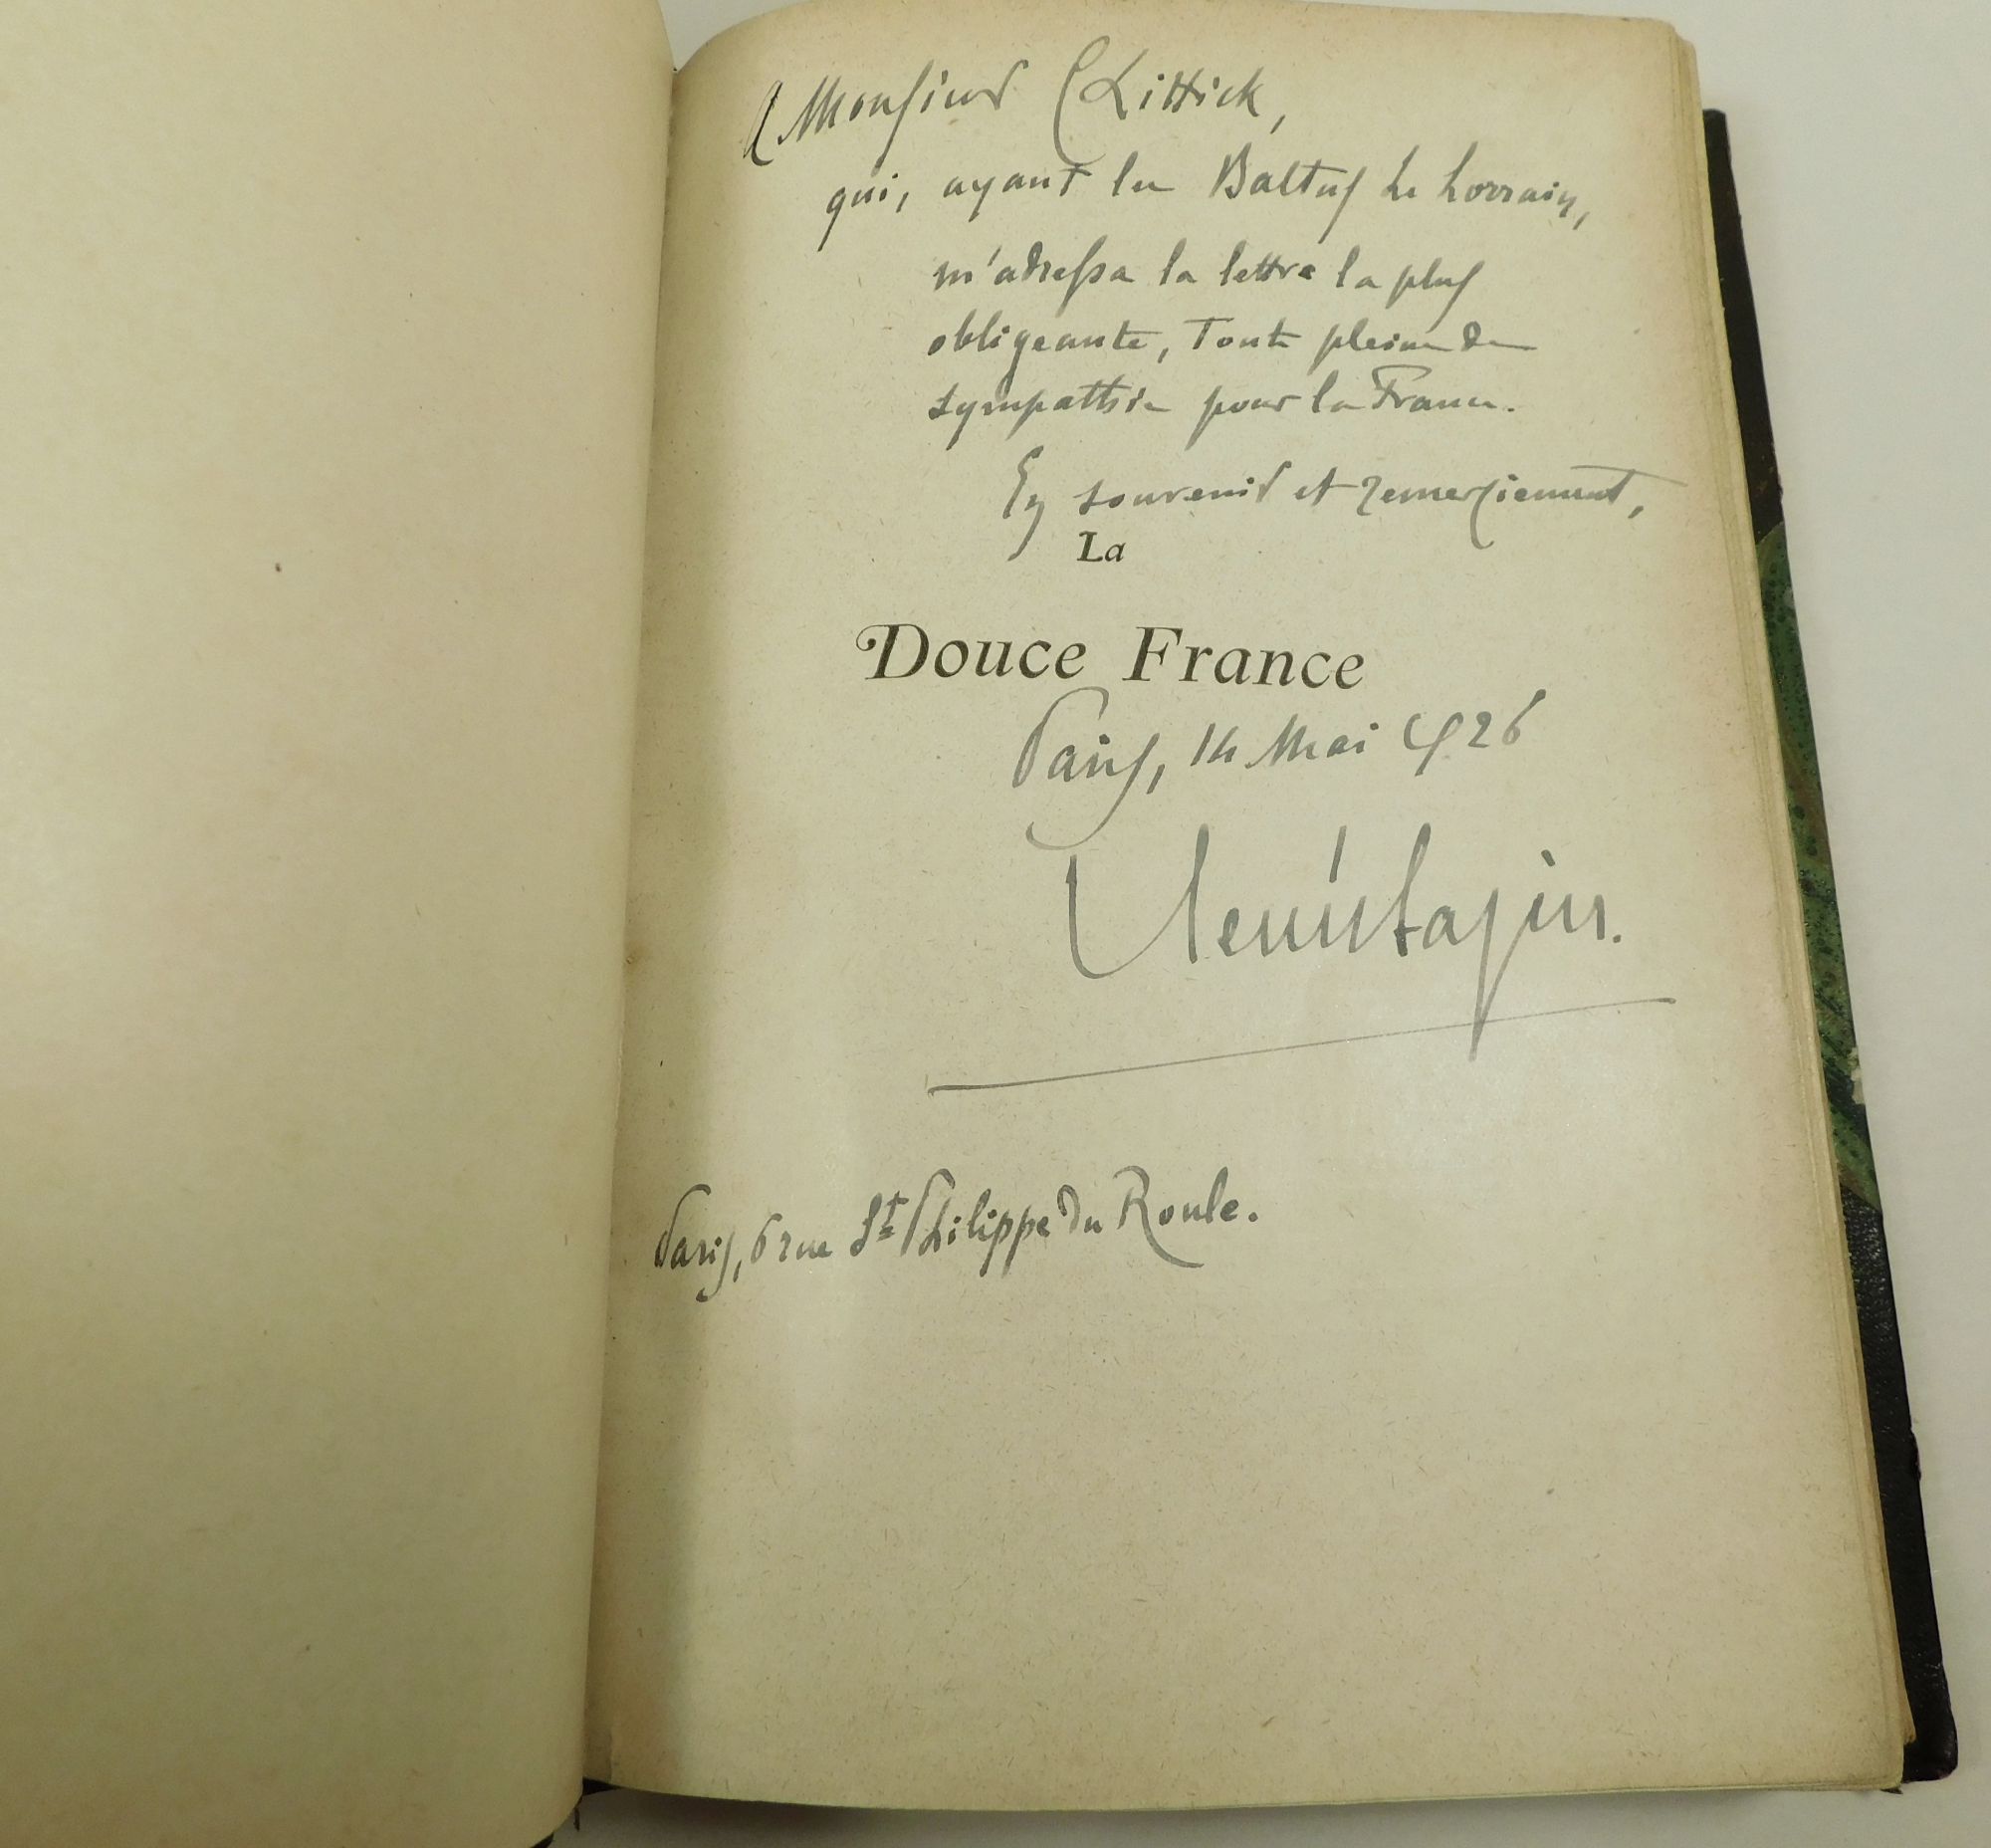 A Monsieur Kittick,
qui, ayant lu Baltus le Lorrain,
m'adressa la lettre la plus
obligeante, toute pleine de
sympathie pour la France.
En souvenir et remerciement,
La
Douce France
Paris, 14 Mai 1926
René Bazin.
Paris, 6 rue St Philippe du Roule.